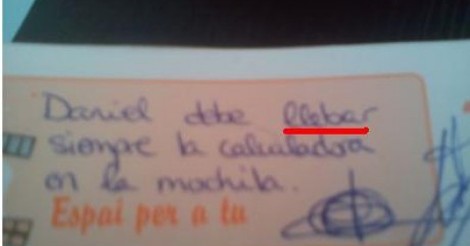 Daniel debe llebar
siempre la calculadora
en la mochila.
Espai per a tu